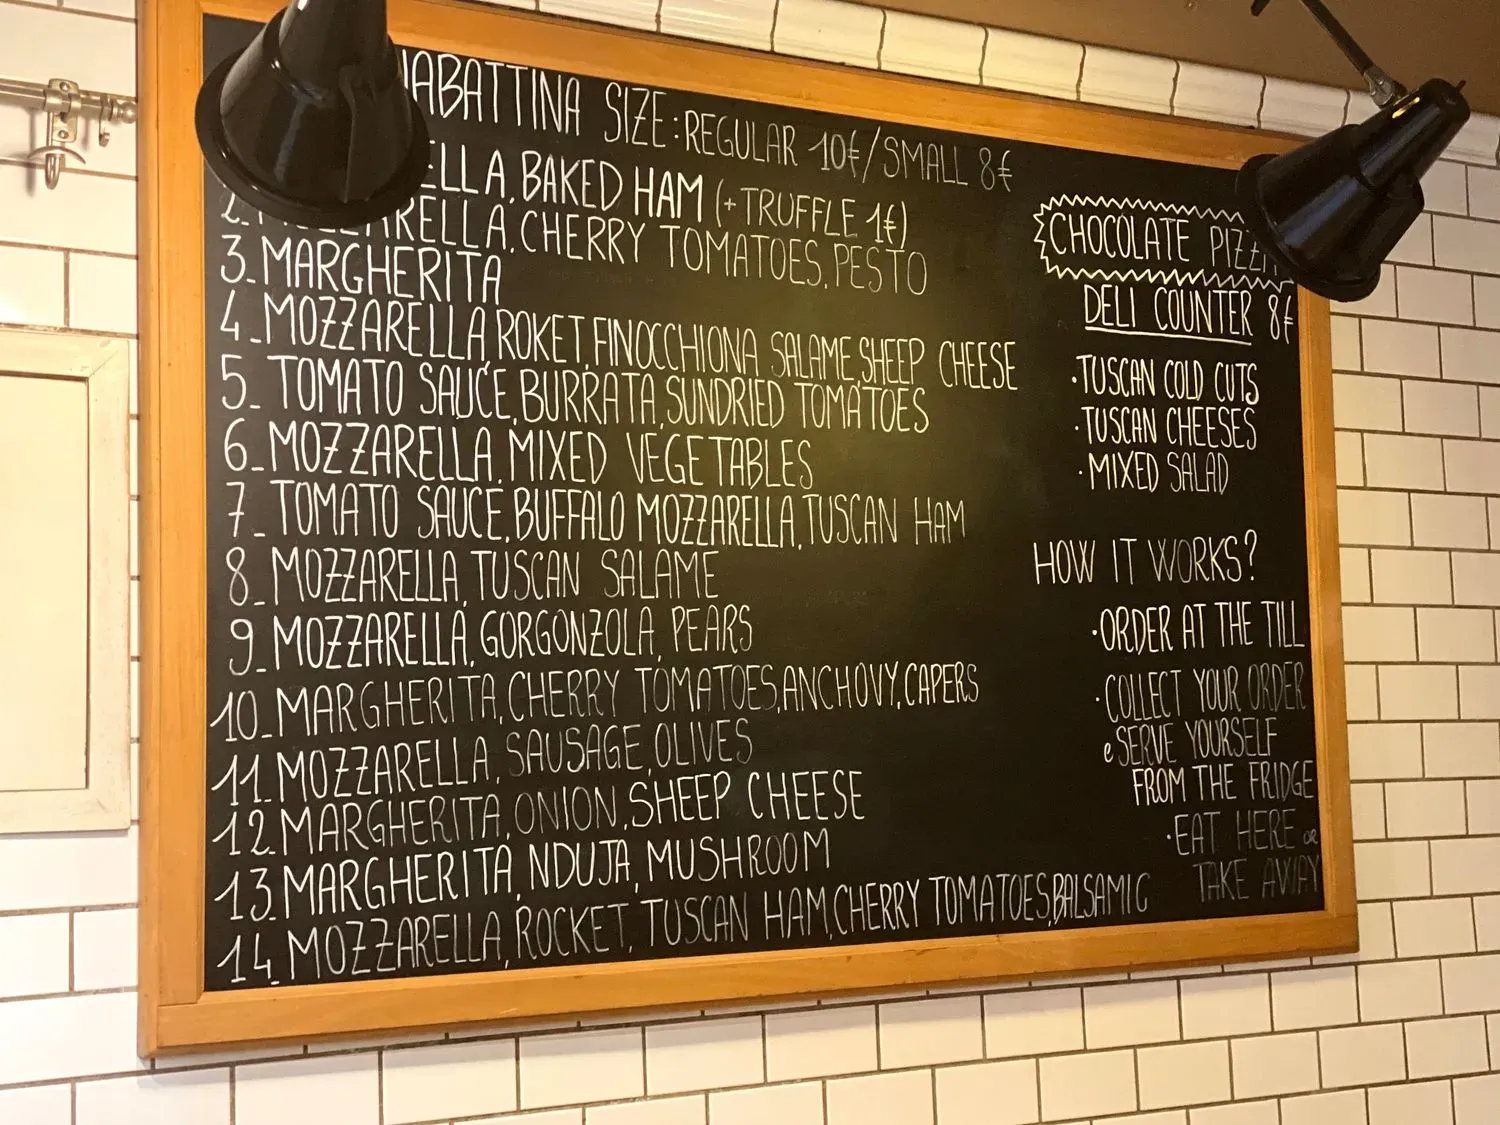 SIZE: REGULAR 10€/SMALL 8€
BAKED HAM (+TRUFFLE 1€)
2. MOZZARELLA, CHERRY TOMATOES, PESTO
3_MARGHERITA
4_MOZZARELLA, ROKET, FINOCCHIONA SALAME, SHEEP CHEESE
5_TOMATO SAUCE, BURRATA, SUNDRIED TOMATOES
6_MOZZARELLA, MIXED VEGETABLES
7_TOMATO SAUCE, BUFFALO MOZZARELLA, TUSCAN HAM
8_MOZZARELLA, TUSCAN SALAME
9_MOZZARELLA, GORGONZOLA, PEARS
10_MARGHERITA, CHERRY TOMATOES, ANCHOVY, CAPERS
11_MOZZARELLA, SAUSAGE, OLIVES
12_MARGHERITA, ONION, SHEEP CHEESE
13_MARGHERITA, NDUJA, MUSHROOM
14_MOZZARELLA, ROCKET, TUSCAN HAM, CHERRY TOMATOES, BALSAMIC
CHOCOLATE PIZZA
DELI COUNTER 8€
·TUSCAN COLD CUTS
·TUSCAN CHEESES
·MIXED SALAD
HOW IT WORKS?
·ORDER AT THE TILL
·COLLECT YOUR ORDER
e SERVE YOURSELF
FROM THE FRIDGE
·EAT HERE OR
TAKE AWAY